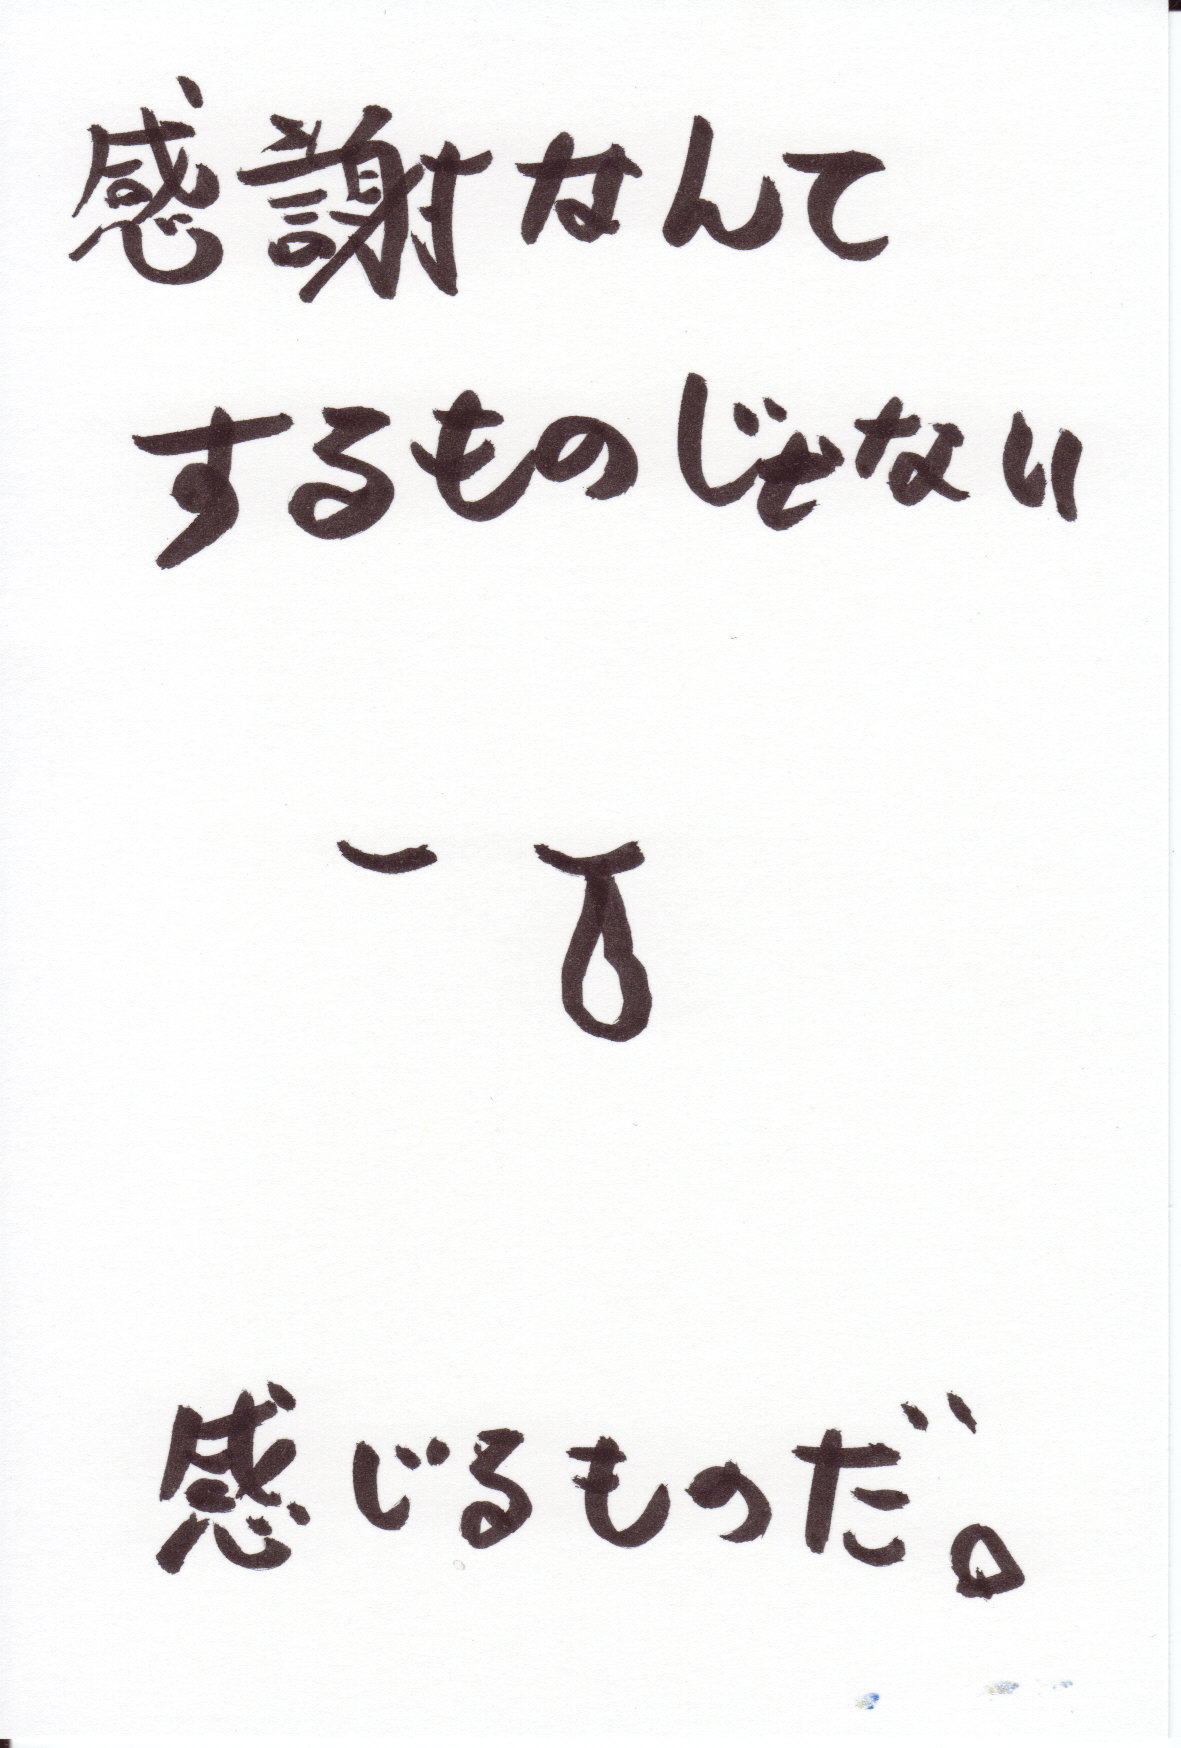 感謝なんて
するものじゃない
感じるものだ。